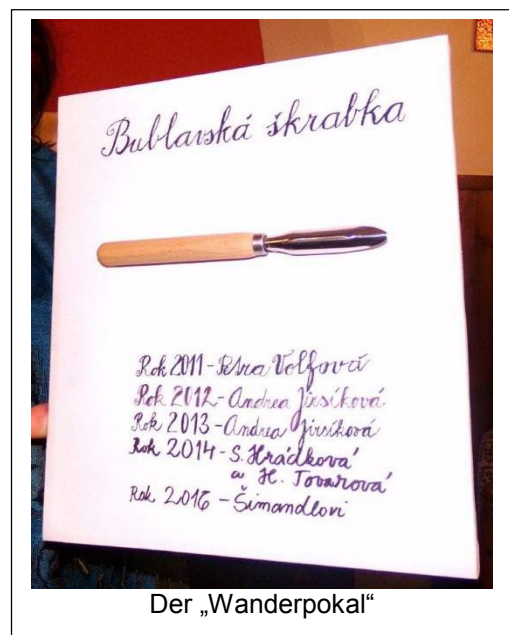 Bublavská škrabka
Rok 2011 - Petra Volfová
Rok 2012 - Andrea Jirsíková
Rok 2013 - Andrea Jirsíková
Rok 2014 - S. Hrádková
a H. Tovarová
Rok 2016 - Šimandlovi
Der „Wanderpokal“